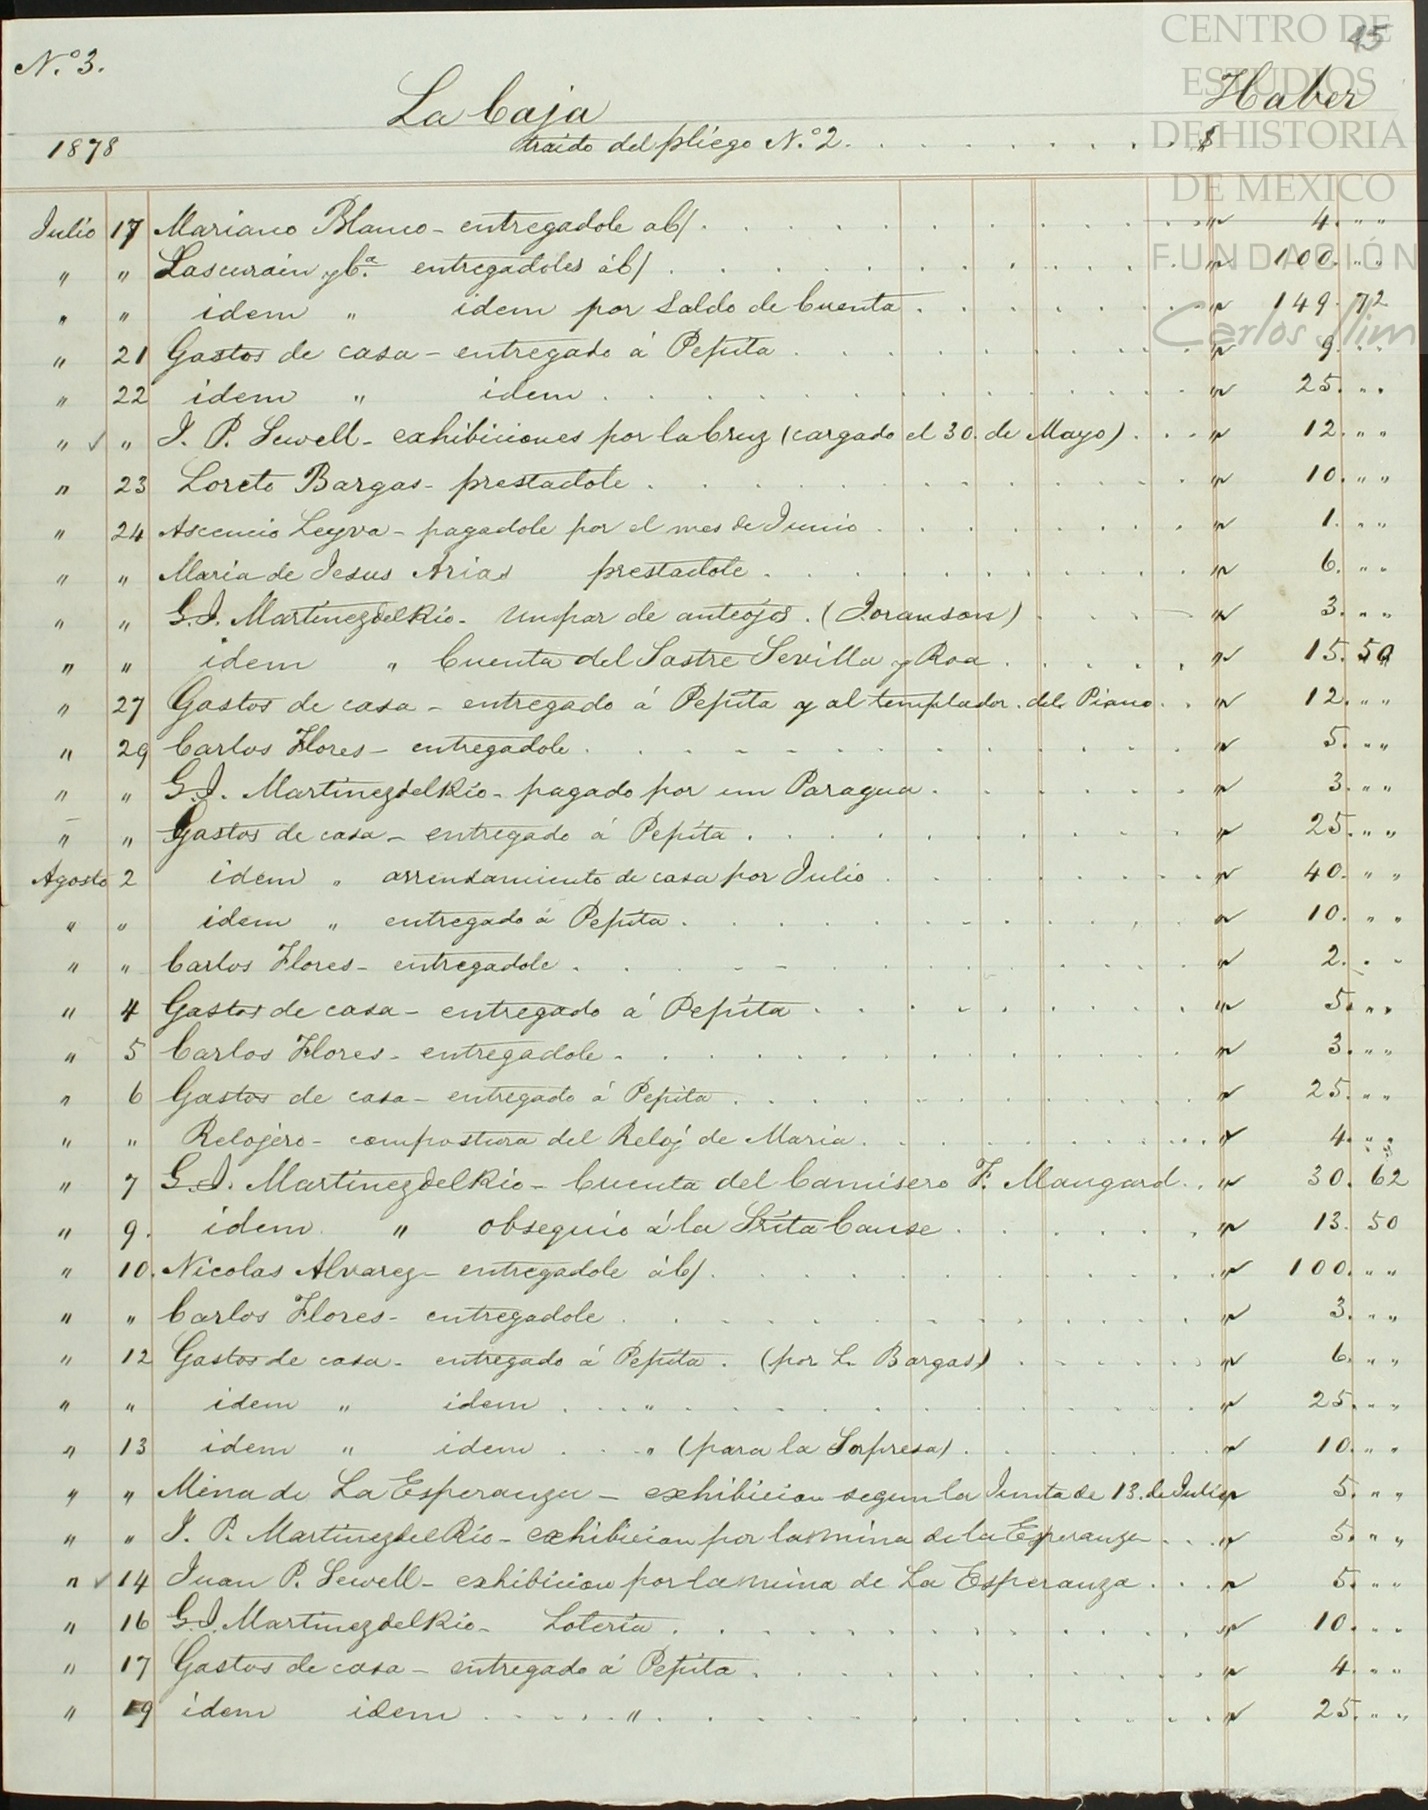 CENTRO DE
ESTUDIOS
DE HISTORIA
DE MEXICO
FUNDACIÓN
Carlos Slim
45
N.º 3.
La Caja Haber
1878 traido del pliego N.º 2. $
Julio 17 Mariano Blanco - entregadole a C/ " 4. " "
" " Lascurain y Cª entregadoles á C/ " 100. " "
" " idem " idem por Saldo de Cuenta " 149. 72
" 21 Gastos de casa - entregado á Pepita " 9. " "
" 22 idem " idem " 25. " "
" ✓ " J. P. Sewell - exhibiciones por la Cruz (cargado el 30. de Mayo) " 12. " "
" 23 Loreto Bargas - prestadole " 10. " "
" 24 Ascencio Leyva - pagadole por el mes de Junio " 1. " "
" " Maria de Jesus Arias prestadole " 6. " "
" " G. I. Martinez del Rio - Un par de anteojos. (Joranson) " 3. " "
" " idem " Cuenta del Sastre Sevilla y Roa " 15. 50
" 27 Gastos de casa - entregado á Pepita y al templador del Piano " 12. " "
" 29 Carlos Flores - entregadole " 5. " "
" " G. I. Martinez del Rio - pagado por un Paragua " 3. " "
" " Gastos de casa - entregado á Pepita " 25. " "
Agosto 2 idem " arrendamiento de casa por Julio " 40. " "
" " idem " entregado á Pepita " 10. " "
" " Carlos Flores - entregadole " 2. " "
" 4 Gastos de casa - entregado á Pepita " 5. " "
" 5 Carlos Flores - entregadole " 3. " "
" 6 Gastos de casa - entregado á Pepita " 25. " "
" " Relojero - compostura del Reloj de Maria " 4. " "
" 7 G. I. Martinez del Rio - Cuenta del Camisero F. Maugard " 30. 62
" 9. idem " obsequio á la Srita Cause " 13. 50
" 10. Nicolas Alvarez - entregadole á C/ " 100. " "
" " Carlos Flores - entregadole " 3. " "
" 12 Gastos de casa - entregado á Pepita. (por L. Bargas) " 6. " "
" " idem " idem " " 25. " "
" 13 idem " idem " (para la Sorpresa) " 10. " "
" " Mina de La Esperanza - exhibicion segun la Junta de 13. de Julio " 5. " "
" " J. P. Martinez del Rio - exhibicion por la mina de la Esperanza " 5. " "
" ✓ 14 Juan P. Sewell - exhibicion por la mina de La Esperanza " 5. " "
" 16 G. I. Martinez del Rio - Loteria " 10. " "
" 17 Gastos de casa - entregado á Pepita " 4. " "
" 19 idem idem " " 25. " "